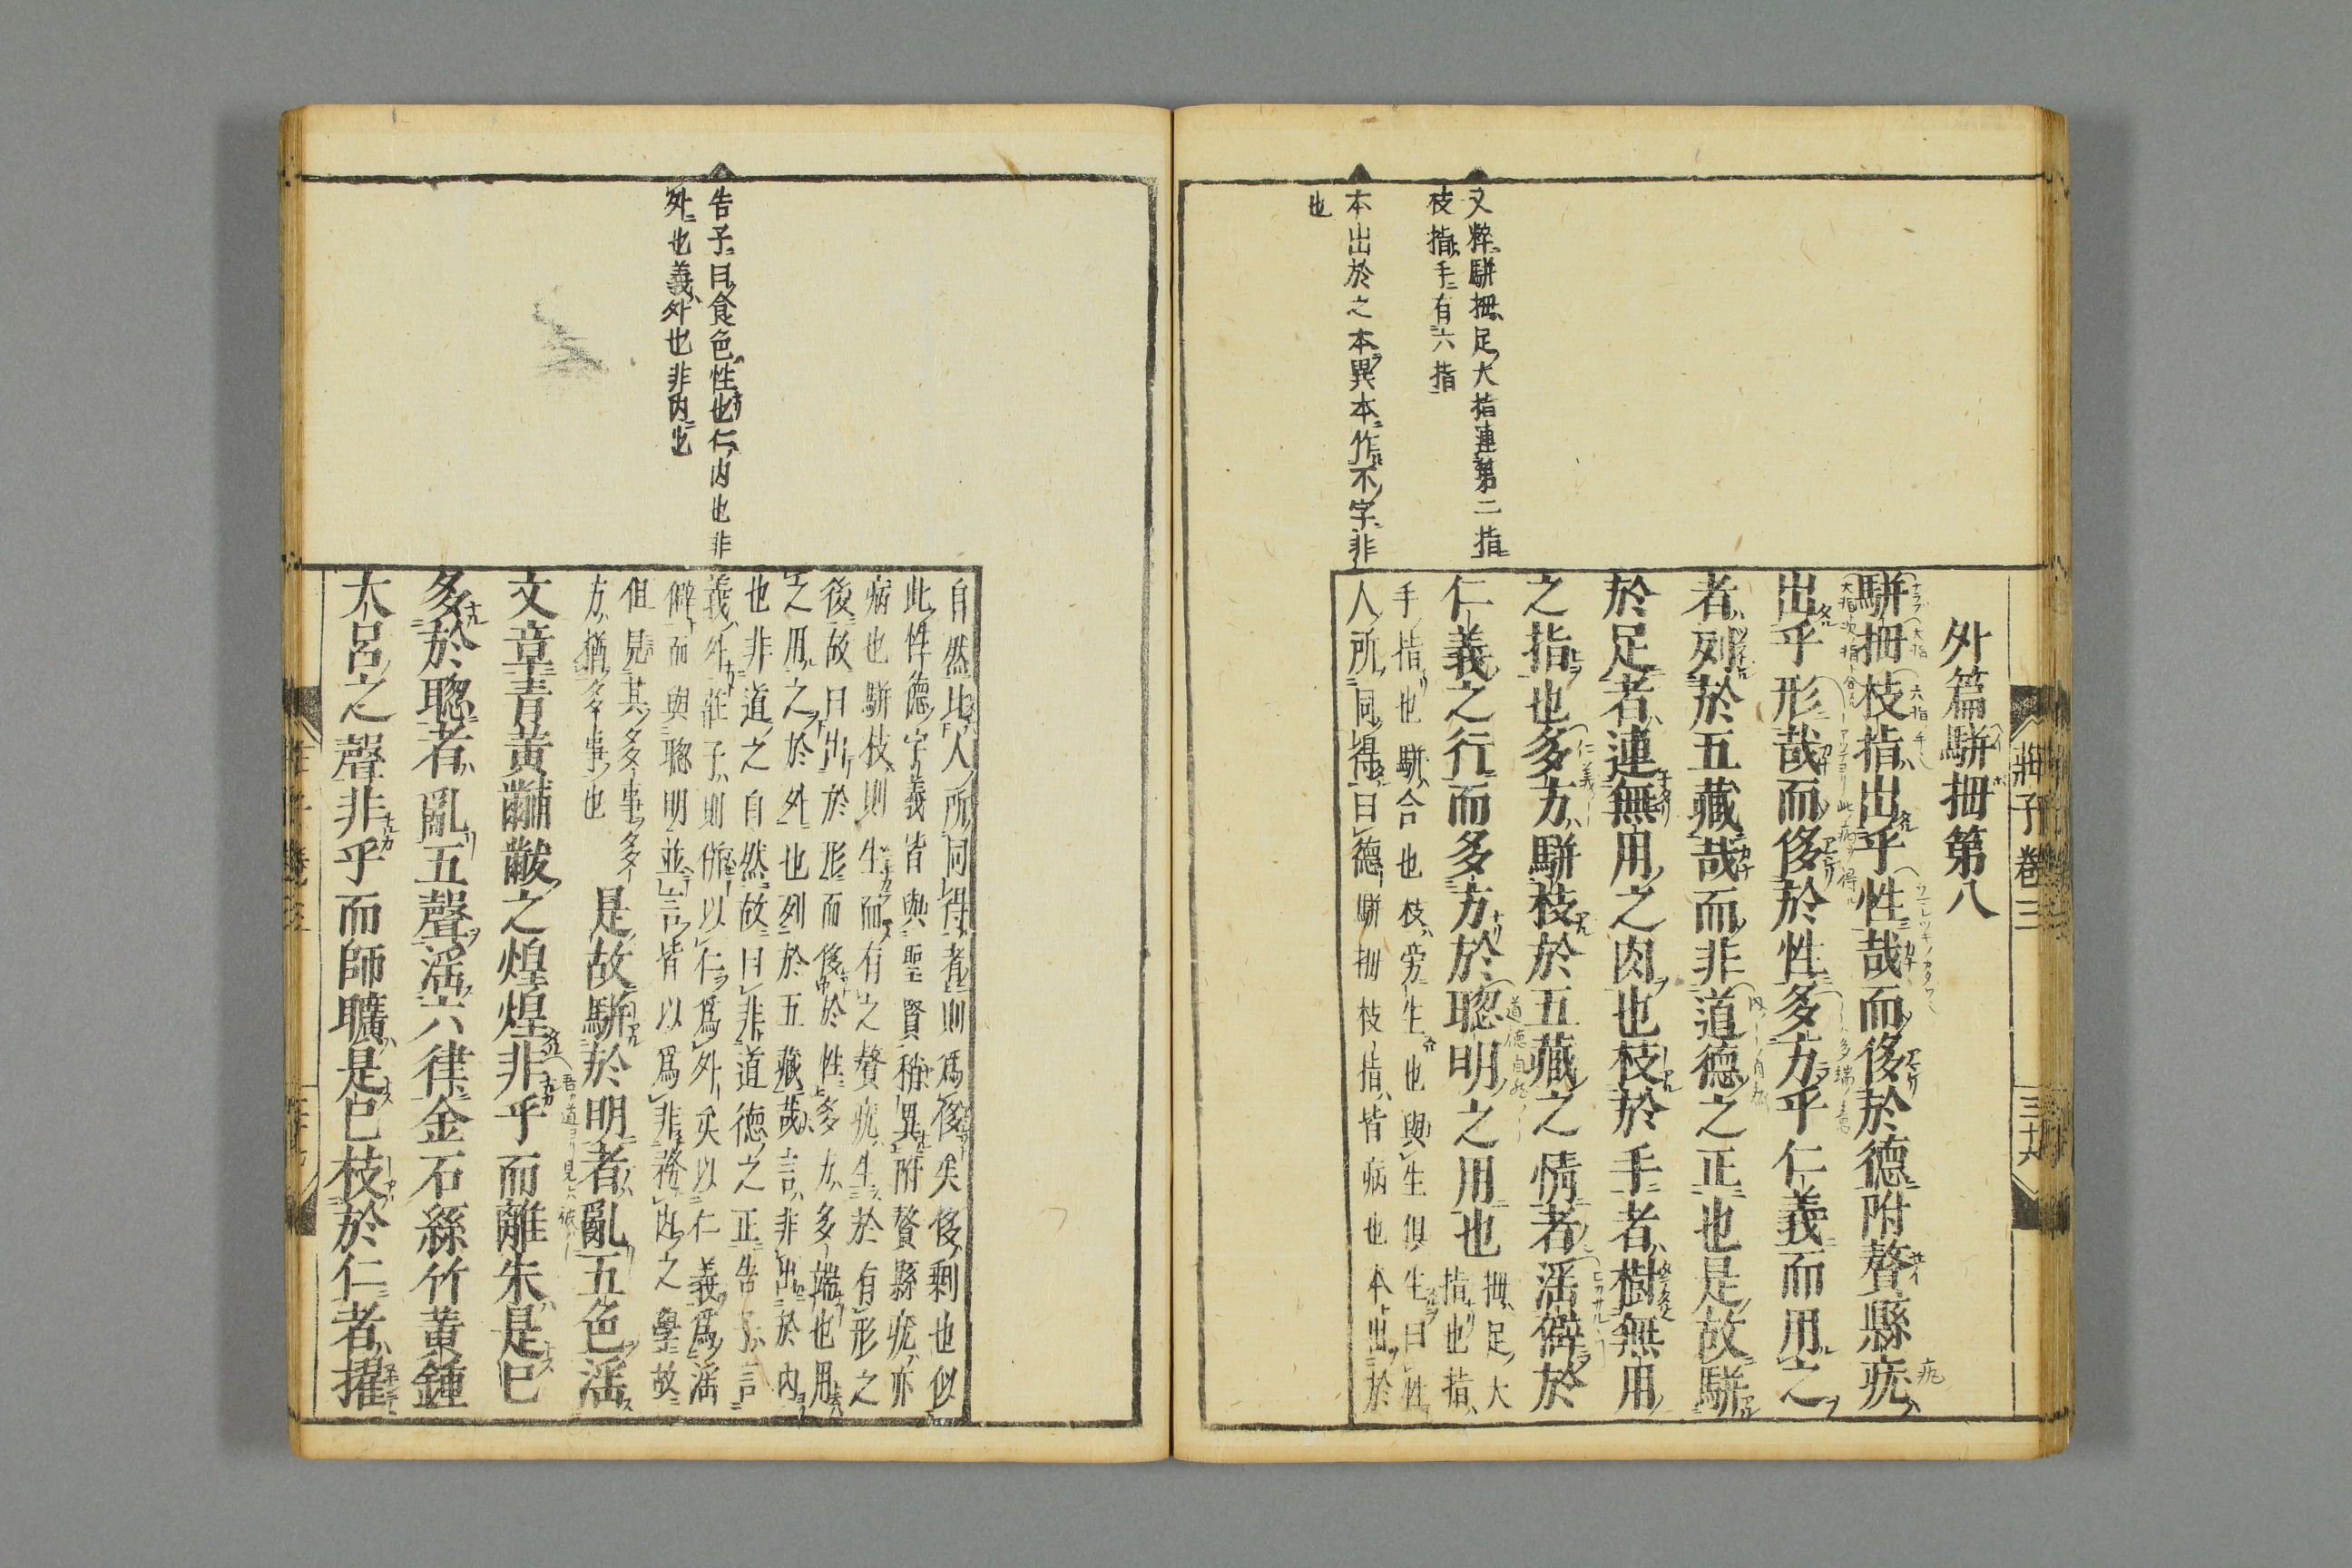 莊子卷三
三十六
外篇駢拇第八
駢拇枝指出乎性哉而侈於德附贅縣疣
出乎形哉而侈於性多方乎仁義而用之
者列於五藏哉而非道德之正也是故駢
於足者連無用之肉也枝於手者樹無用
之指也多方駢枝於五藏之情者滛僻於
仁義之行而多方於聰明之用也
拇足大
指也指
手指也駢合也枝旁生也與生俱生曰性
人所同得曰德駢拇枝指皆病也本出於
又粹駢拇足大指連第二指
枝指手有六指
本出於之本異本作不字非
也
自然比人所同得者則爲侈矣侈剩也似
此性德字義皆與聖賢稍異附贅縣疣亦
病也駢枝則生而有之贅疣生於有形之
後故曰出於形而侈於性多方多端也用
之用之於外也列於五藏哉言非出於內
也非道之自然故曰非道德之正告子言
義外莊子則併以仁爲外矣以仁義爲滛
僻而與聰明並言皆以爲非務內之學故
但見其多事多
方猶多事也
是故駢於明者亂五色滛
文章青黃黼黻之煌煌非乎而離朱是已
多於聰者亂五聲滛六律金石絲竹黃鍾
大呂之聲非乎而師曠是已枝於仁者擢
告子曰食色性也仁內也非
外也義外也非內也